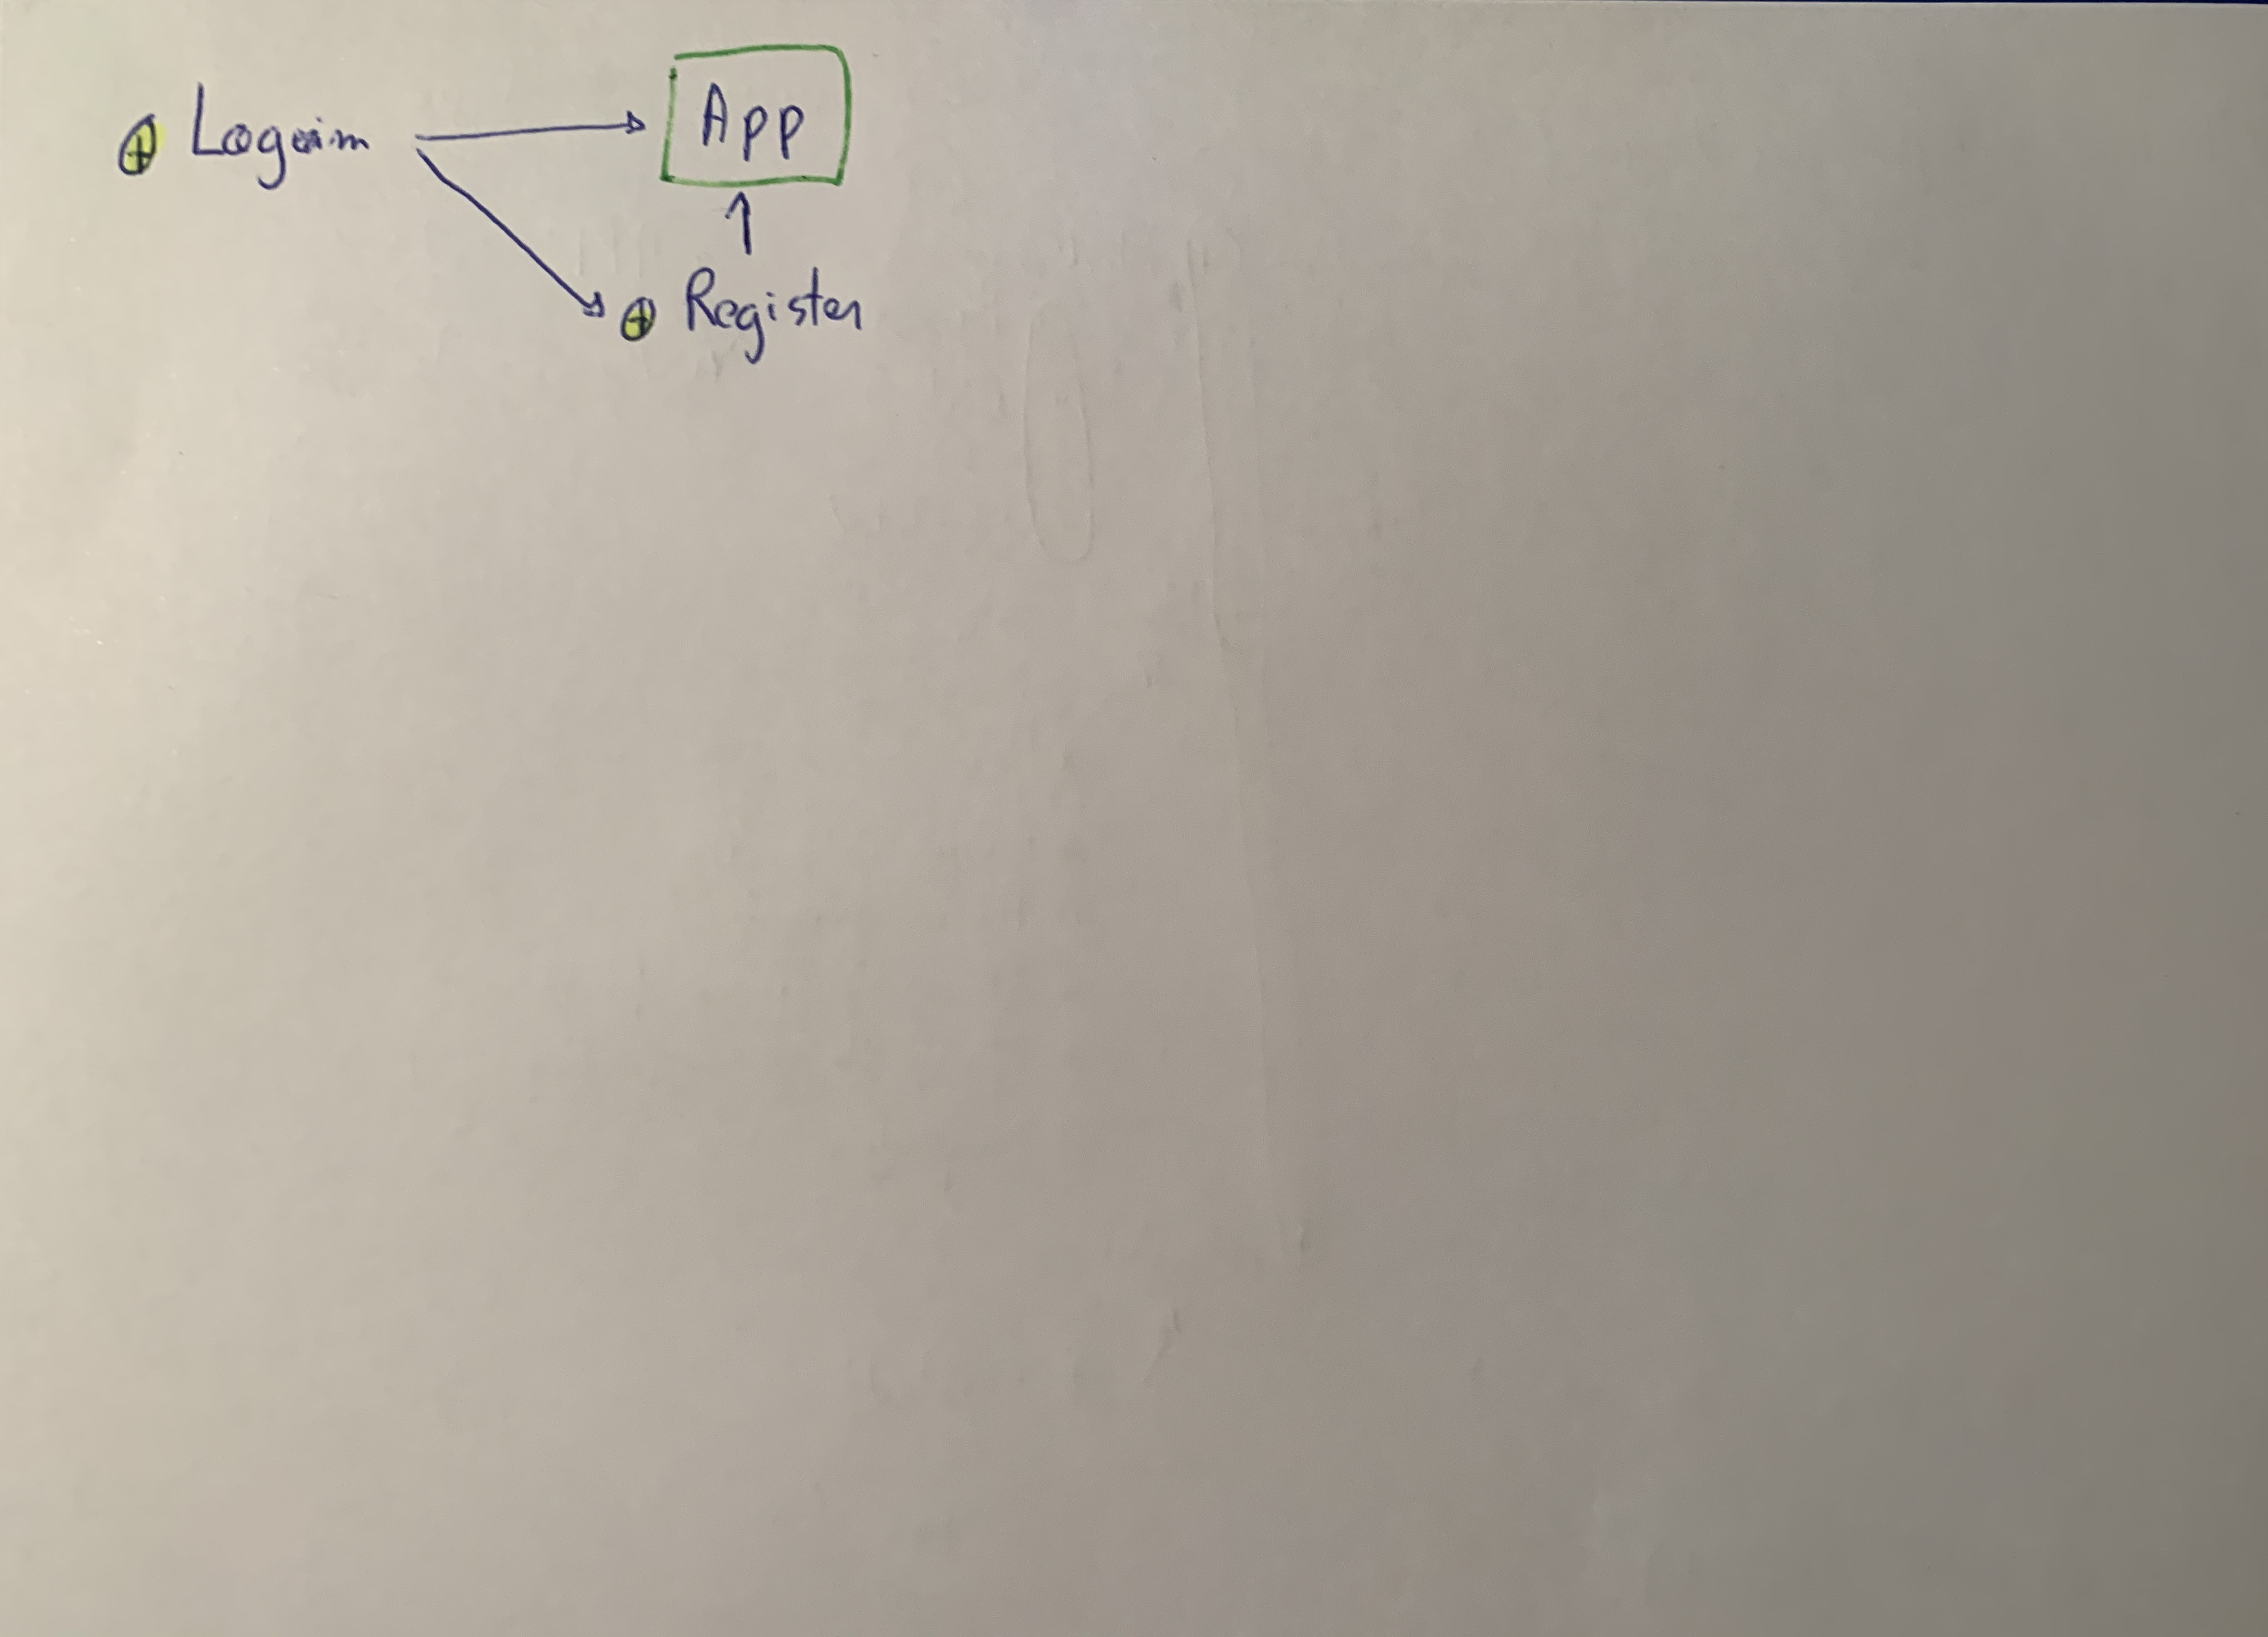 Login
App
Register